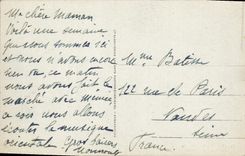 Ma chère Maman,
Voilà une semaine
que nous sommes ici
et nous n'avons encore
rien vu, ce matin
nous avons fait le
marché avec
ce soir nous allons
écouter la musique
orientale gros baisers
Mme
122 rue de Paris
Seine
France